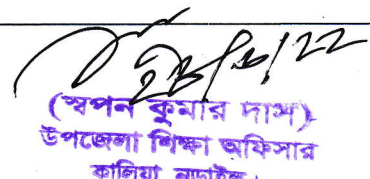 (স্বপন কুমার দাস)
উপজেলা শিক্ষা অফিসার
কালিয়া, নড়াইল।